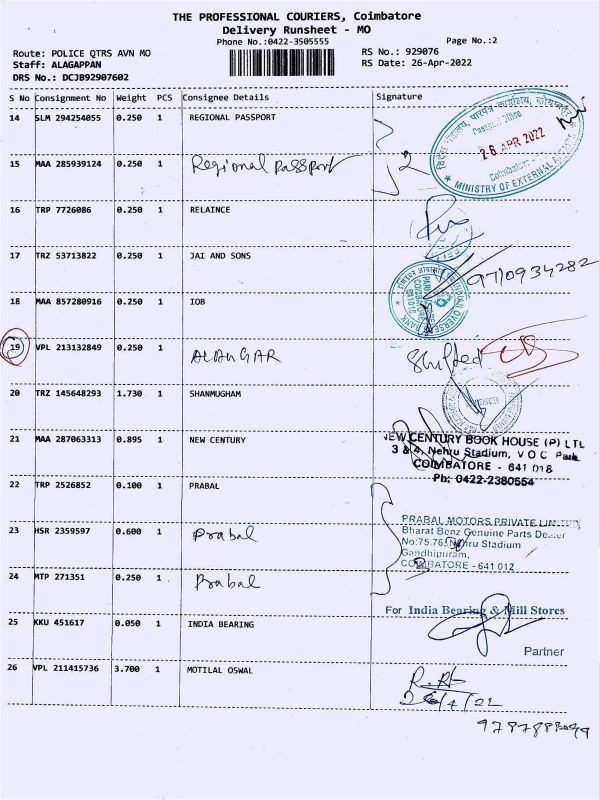 THE PROFESSIONAL COURIERS, Coimbatore
Delivery Runsheet - MO
Phone No.:0422-3505555
Page No.:2
Route: POLICE QTRS AVN MO
RS No.: 929076
Staff: ALAGAPPAN
RS Date: 26-Apr-2022
DRS No.: DCJB92907602
S No Consignment No Weight PCS Consignee Details Signature
14 SLM 294254055 0.250 1 REGIONAL PASSPORT
Passport Office
26 APR 2022
Coimbatore
★ MINISTRY OF EXTERNAL
15 MAA 285939124 0.250 1 Regional Passport 2
16 TRP 7726086 0.250 1 RELAINCE
17 TRZ 53713822 0.250 1 JAI AND SONS
9710934282
18 MAA 857280916 0.250 1 IOB
19 VPL 213132849 0.250 1 Shifted
20 TRZ 145648293 1.730 1 SHANMUGHAM
21 MAA 287063313 0.895 1 NEW CENTURY
NEW CENTURY BOOK HOUSE (P) LTD
3 & 4, Nehru Stadium, V O C Park
COIMBATORE - 641 018
Ph: 0422-2380554
22 TRP 2526852 0.100 1 PRABAL
23 HSR 2359597 0.600 1 Prabal
PRABAL MOTORS PRIVATE LIMITED
Bharat Benz Genuine Parts Dealer
No:75.76, Nehru Stadium
Gandhipuram,
COIMBATORE - 641 012
24 MTP 271351 0.250 1 Prabal
25 KKU 451617 0.050 1 INDIA BEARING
For India Bearing & Mill Stores
Partner
26 VPL 211415736 3.700 1 MOTILAL OSWAL
26/4/22